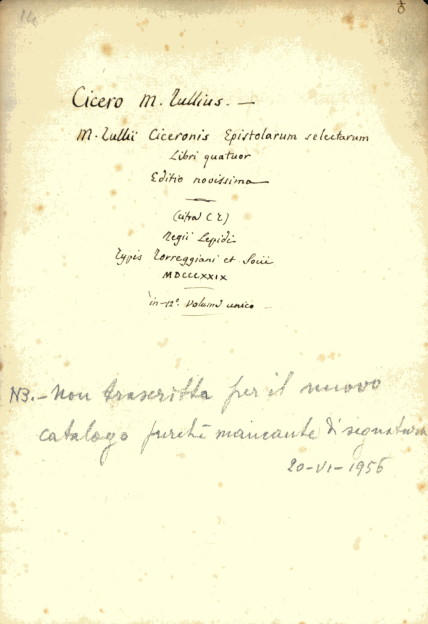 14
Cicero M. Tullius. —
M. Tullii Ciceronis Epistolarum selectarum
Libri quatuor
Editio novissima
(cifra C E)
Regii Lepidi
Typis Torreggiani et Socii
MDCCCLXXIX
in-12º. Volume unico
NB.- Non trascritta per il nuovo
catalogo perchè mancante di segnatura
20-VI-1956